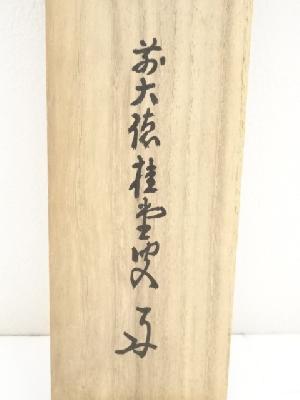 前大徳桂堂叟